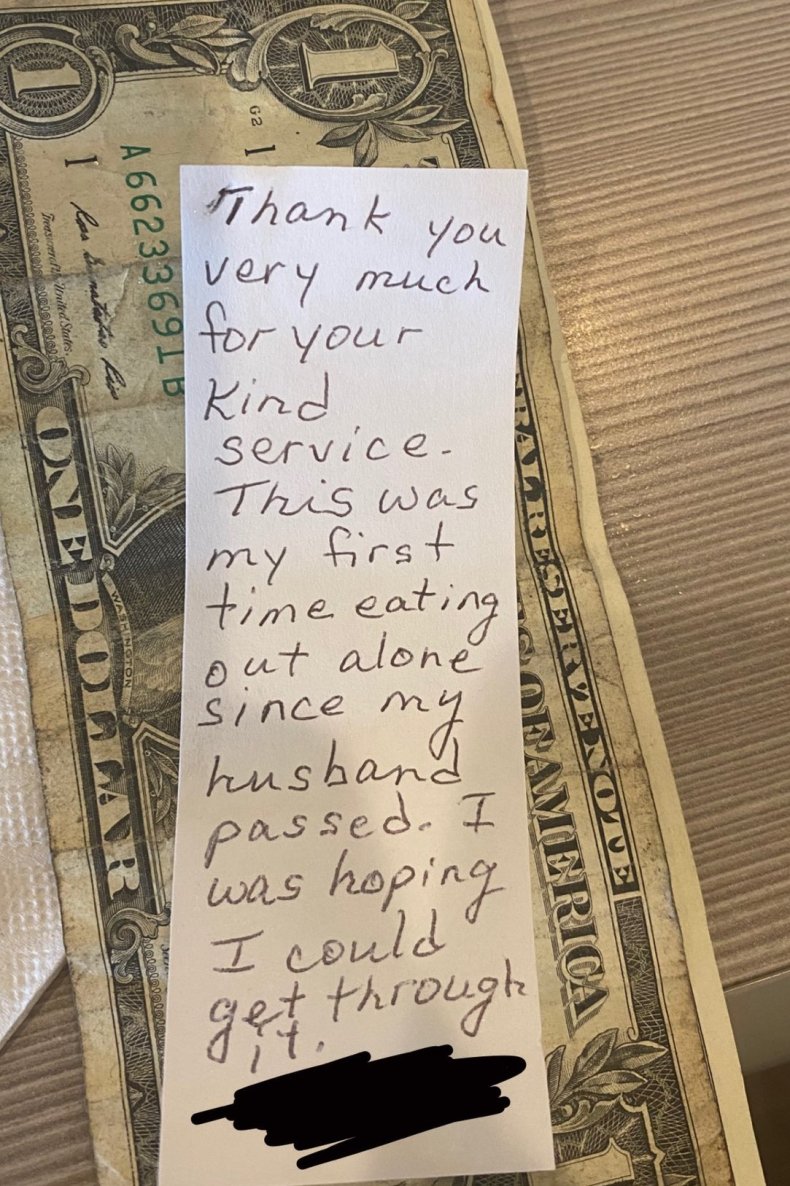 1
1
G2 1
1
A 66233691 B
Treasurer of the United States.
ONE DOLLAR
WASHINGTON
ERAL RESERVE NOTE
ES OF AMERICA
1
Thank you
very much
for your
kind
service.
This was
my first
time eating
out alone
since my
husband
passed. I
was hoping
I could
get through
it.